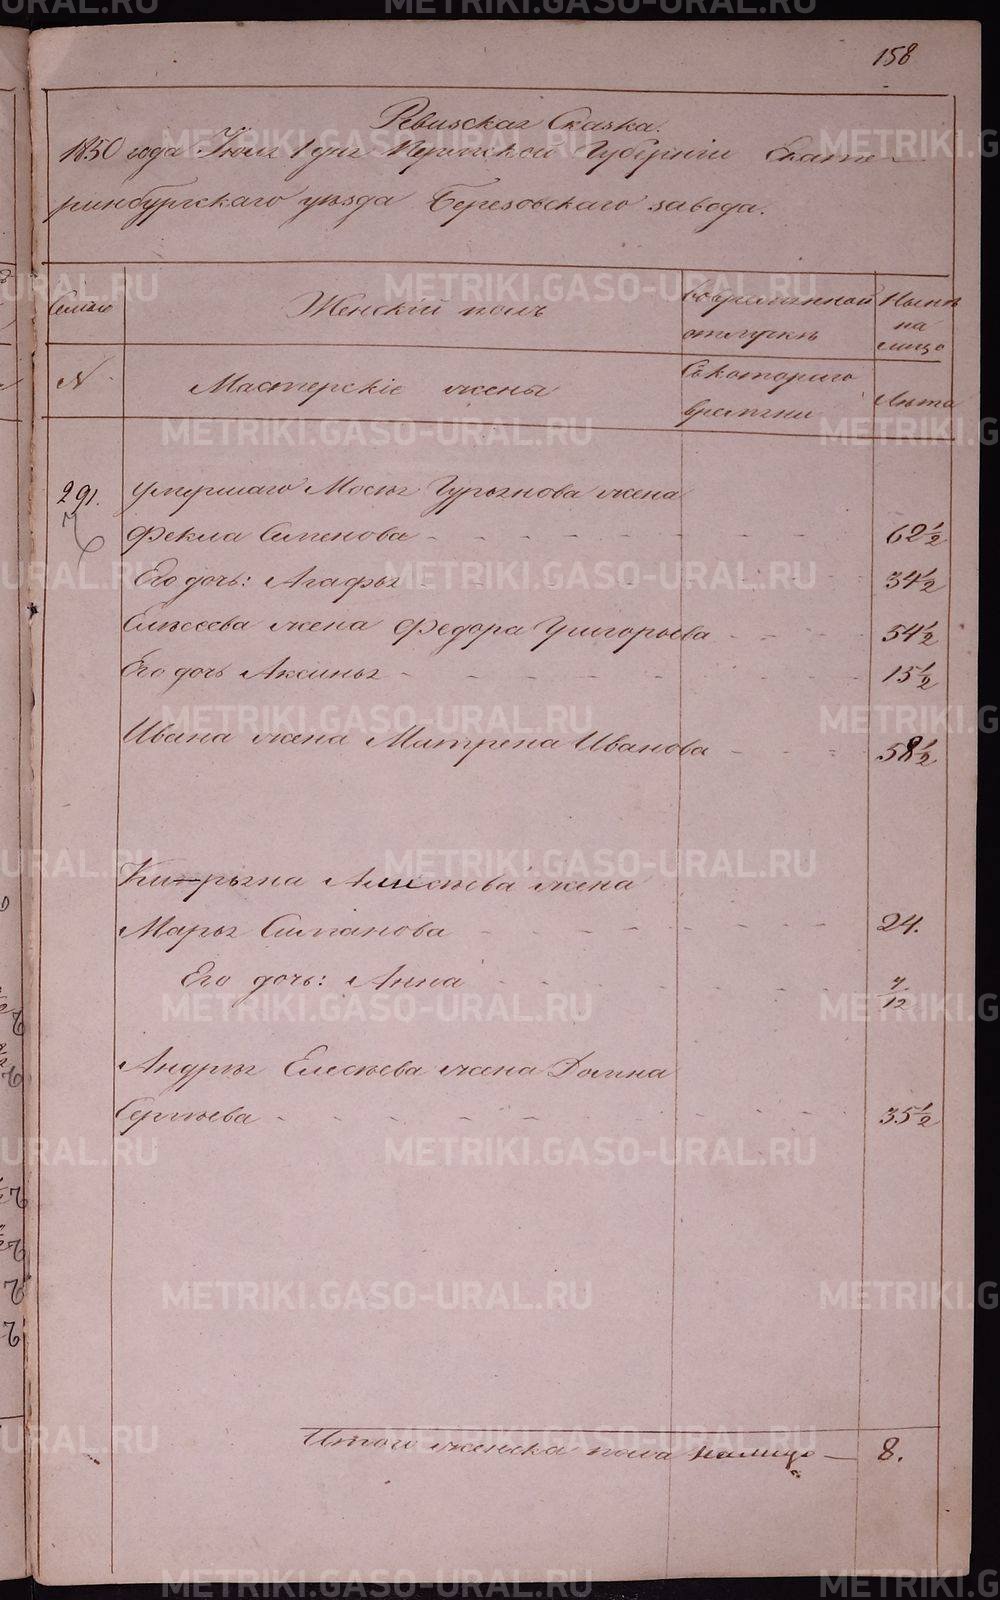 158
Ревизская Сказка.
1850 года Іюля 1 дня Пермской Губерніи Екате-
ринбургскаго уѣзда Березовскаго завода.
Семьи Женскій полъ Во временной отлучкѣ Нынѣ на лицо
№ Мастерскіе жены Съ котораго времени Лѣта
291. умершаго Мосѣя Гурьянова жена
Фекла Семенова 62 1/2
Его дочь: Агафья 34 1/2
Елисеева жена Федора Григорьева 54 1/2
Его дочь Аксинья 15 1/2
Ивана жена Матрена Иванова 58 1/2
жена
Марья Степанова 24.
Его дочь: Анна 7/12
Андрея Елесѣева жена Домна
Сергѣева 35 1/2
Итого женска пола налицо — 8.
METRIKI.GASO-URAL.RU